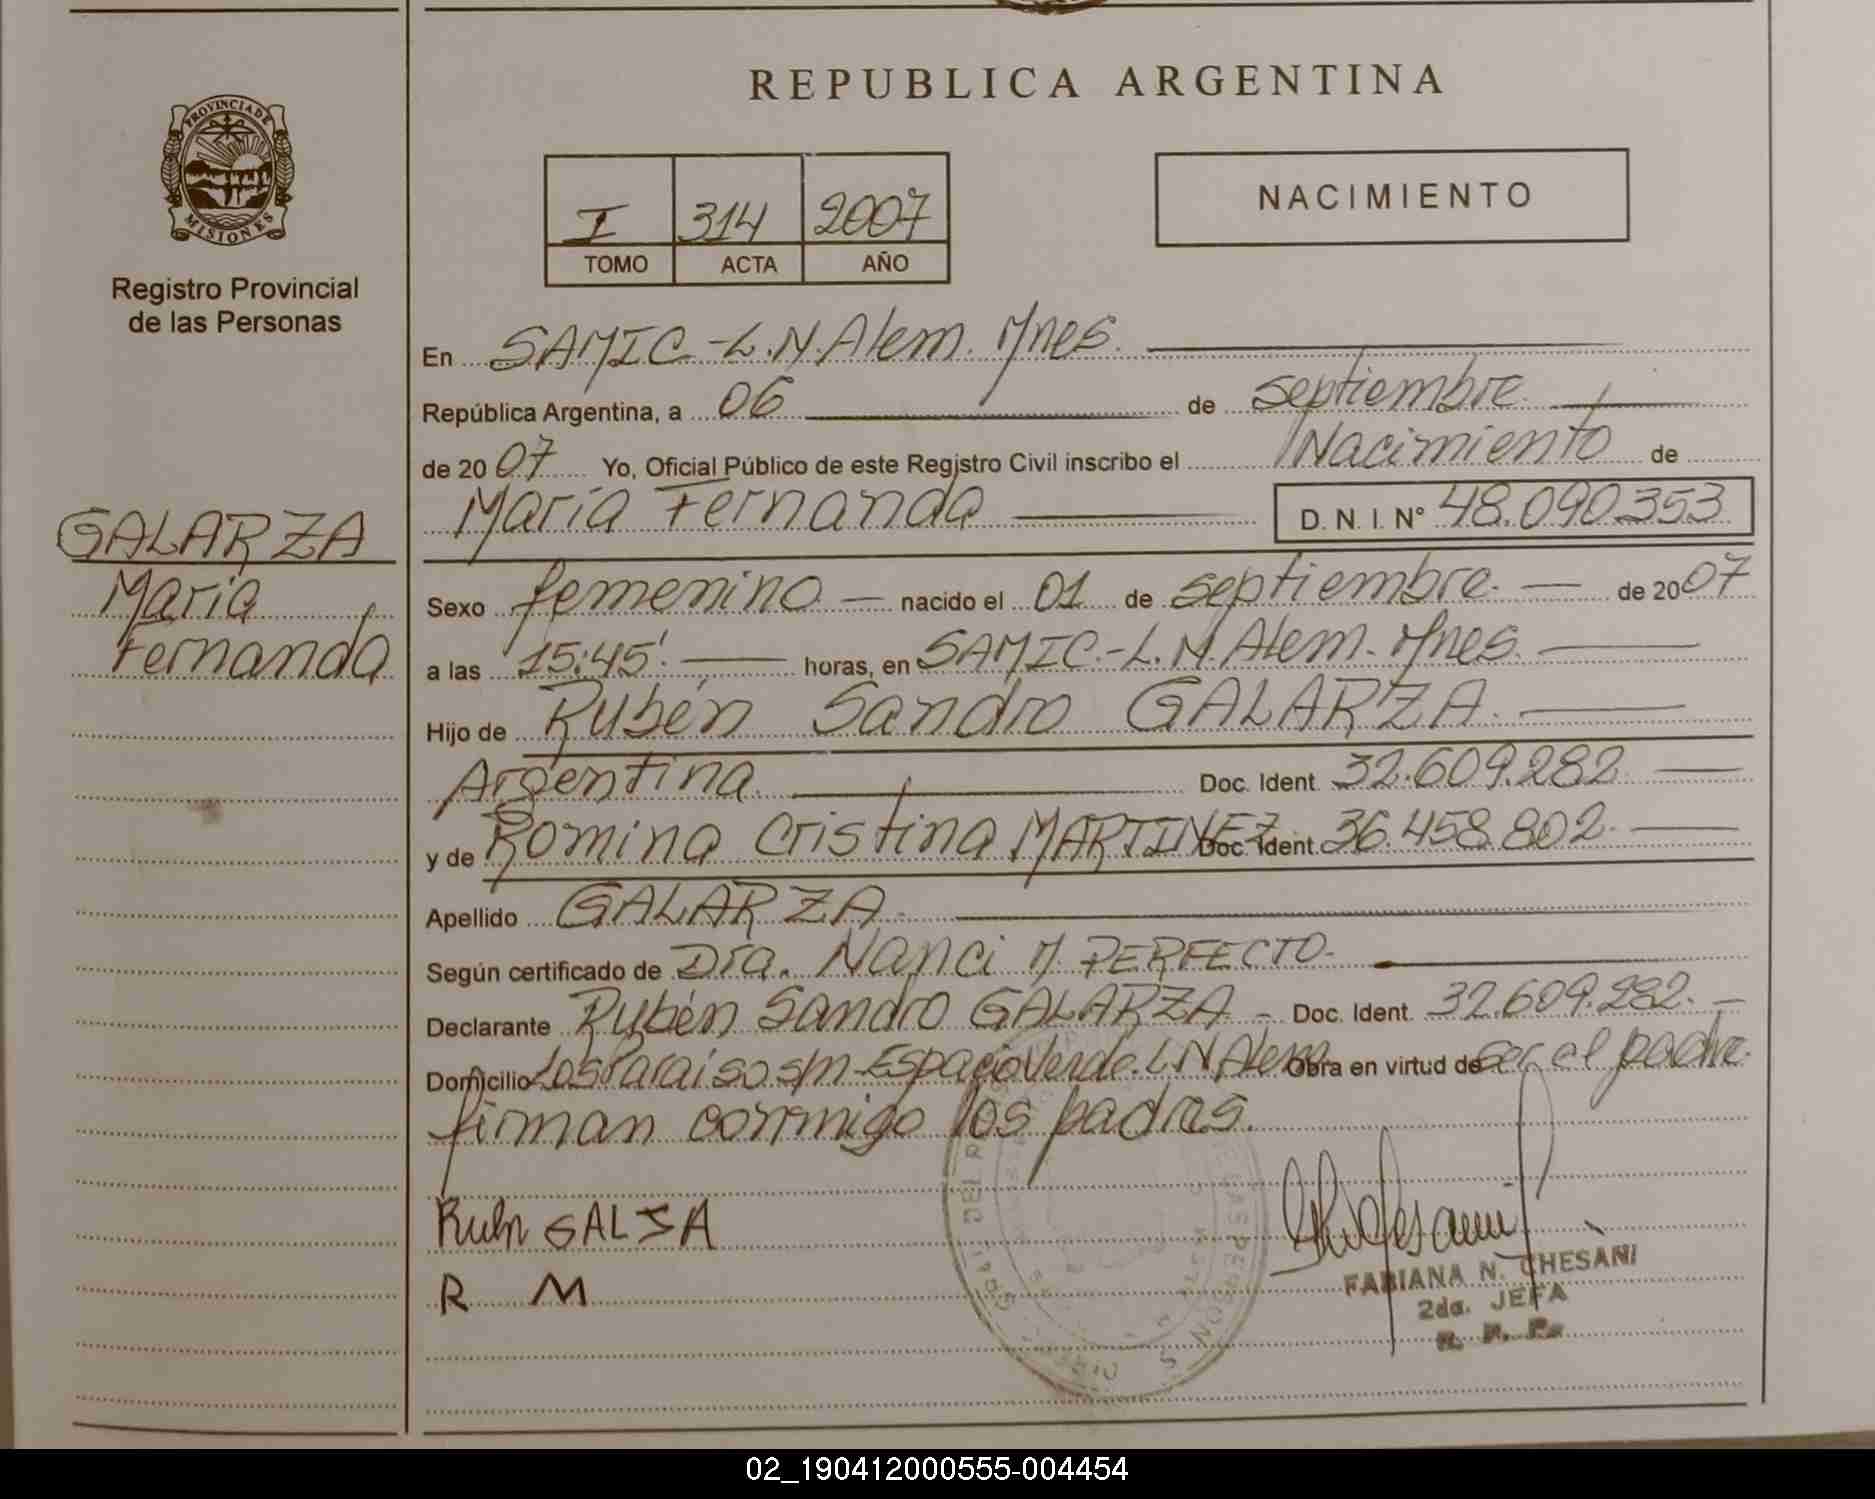 REPUBLICA ARGENTINA
PROVINCIA DE
MISIONES
Registro Provincial
de las Personas
I 314 2007
TOMO ACTA AÑO
NACIMIENTO
En SAMIC.-L.N.Alem. Mnes.
República Argentina, a 06 de septiembre
de 2007 Yo, Oficial Público de este Registro Civil inscribo el Nacimiento de
María Fernanda D. N. I. Nº 48.090.353
GALARZA
María
Fernanda
Sexo femenino nacido el 01 de septiembre. de 2007
a las 15:45'. horas, en SAMIC.-L.N.Alem. Mnes.
Hijo de Rubén Sandro GALARZA.
Argentina. Doc. Ident. 32.609.282
y de Romina Cristina MARTINEZ Doc. Ident. 36.458.802.
Apellido GALARZA.
Según certificado de Dra. Nanci M PERFECTO.
Declarante Rubén Sandro GALARZA Doc. Ident. 32.609.282.
Domicilio Los Paraiso s/n-Espacio Verde.L N Alem Obra en virtud de ser el padre.
firman conmigo los padres.
GALSA
R M
FABIANA N. CHESANI
2da. JEFA
R. P. P.
02_190412000555-004454